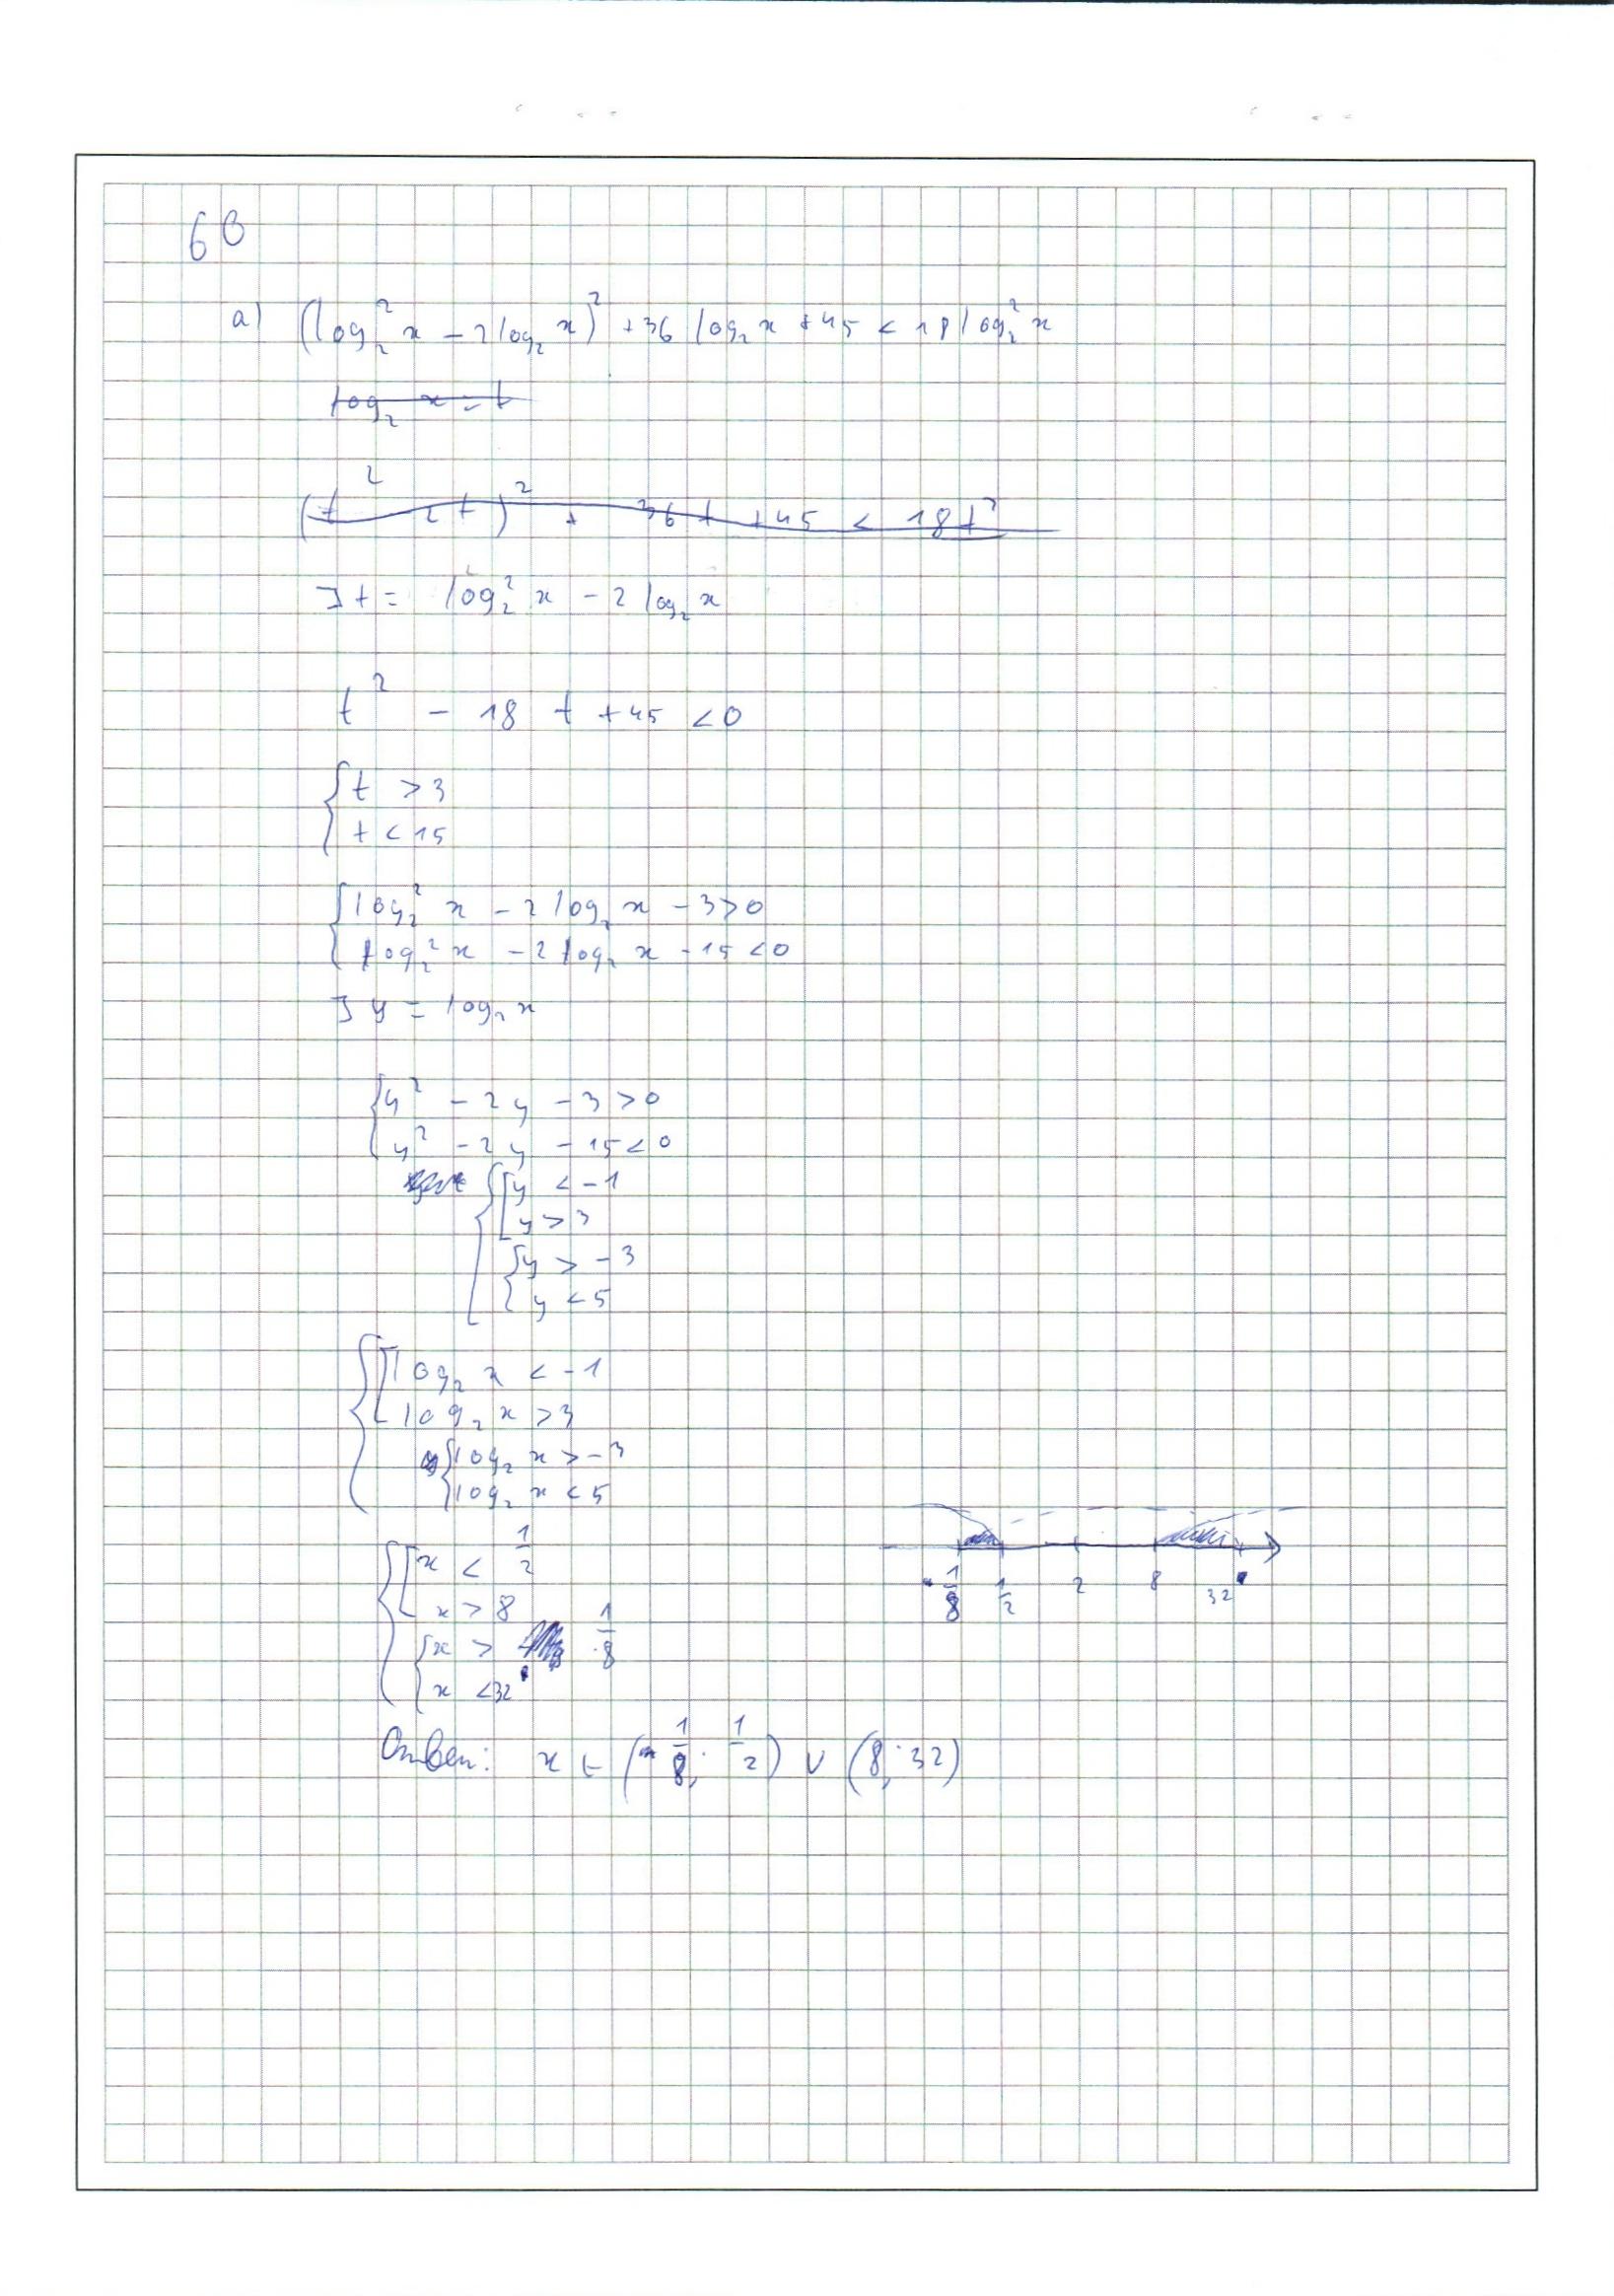 60
a) (log₂² x - 2 log₂ x)² + 36 log₂ x + 45 < 18 log₂² x
log₂ x = t
(t² - 2t)² + 36t + 45 < 18t²
] t = log₂² x - 2 log₂ x
t² - 18 t + 45 < 0
{ t > 3
{ t < 15
{ log₂² x - 2 log₂ x - 3 > 0
{ log₂² x - 2 log₂ x - 15 < 0
] y = log₂ x
{ y² - 2y - 3 > 0
{ y² - 2y - 15 < 0
{ [ y < -1
[ y > 3
{ y > -3
{ y < 5
{ [ log₂ x < -1
[ log₂ x > 3
{ log₂ x > -3
{ log₂ x < 5
{ [ x < 1/2
[ x > 8
{ x > 1/8
{ x < 32
1/8 1/2 2 8 32
Ответ: x ∈ (1/8; 1/2) ∪ (8; 32)